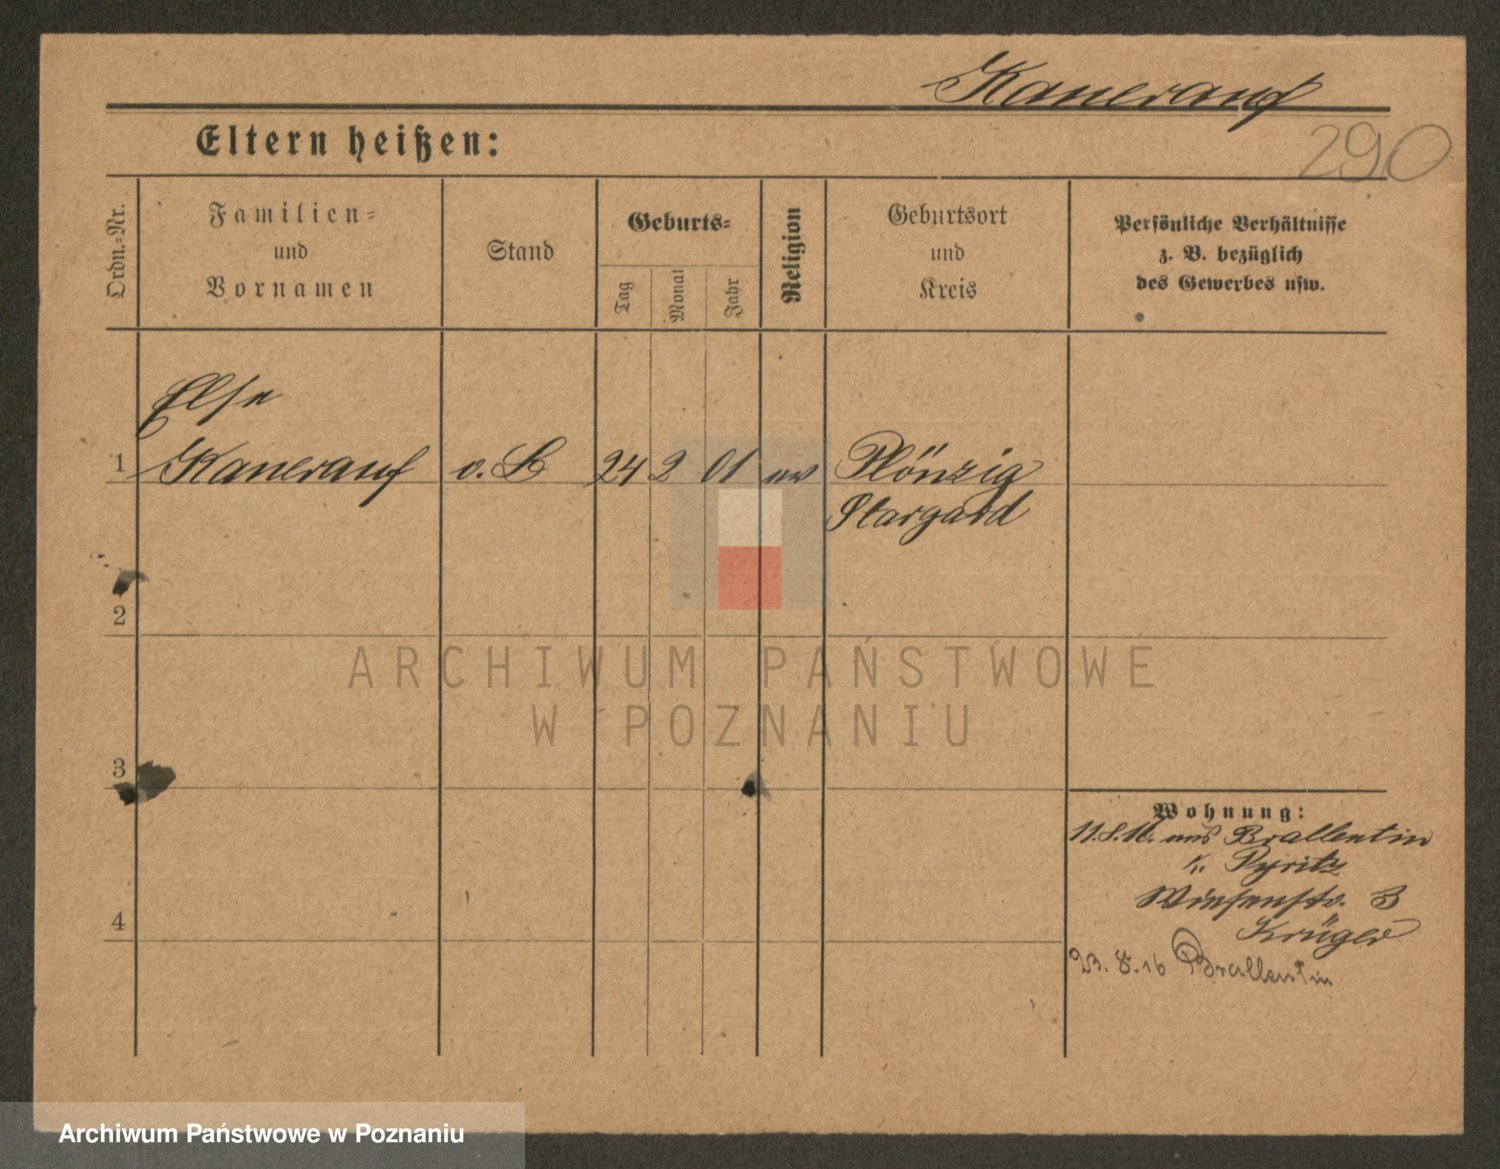 Kanerauf
290
Eltern heißen:
Ordn.=Nr.
Familien=
und
Vornamen
Stand
Geburts=
Tag
Monat
Jahr
Religion
Geburtsort
und
Kreis
Persönliche Verhältnisse
z. B. bezüglich
des Gewerbes usw.
Else
1 Kanerauf o. B 24 2 01 ev Plönzig
Stargard
2
ARCHIWUM PAŃSTWOWE
W POZNANIU
3
Wohnung:
11.8.16. aus Brallentin
K. Pyritz
Wiesenstr. 3
4
Krüger
23. 8. 16 Brallentin
Archiwum Państwowe w Poznaniu